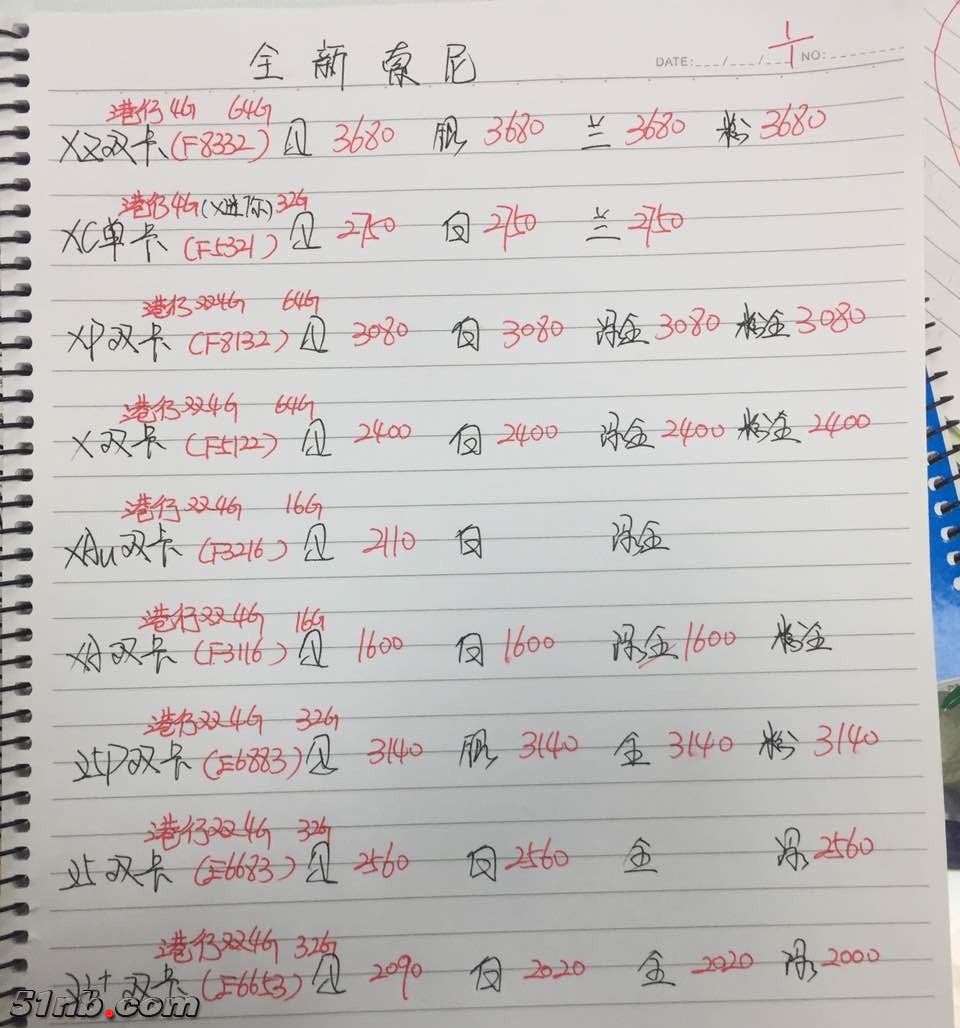 全新索尼
DATE: / / NO: 1/1
港行4G 64G
XZ双卡(F8332) 黑 3680 银 3680 兰 3680 粉 3680
港行4G (X迷你) 32G
XC单卡 (F5321) 黑 2750 白 2750 兰 2750
港行双4G 64G
XP双卡 (F8132) 黑 3080 白 3080 绿金 3080 粉金 3080
港行双4G 64G
X双卡 (F5122) 黑 2400 白 2400 绿金 2400 粉金 2400
港行双4G 16G
XAu双卡 (F3216) 黑 2110 白 绿金
港行双4G 16G
XA双卡 (F3116) 黑 1600 白 1600 绿金 1600 粉金
港行双4G 32G
Z5P双卡 (E6883) 黑 3140 银 3140 金 3140 粉 3140
港行双4G 32G
Z5双卡 (E6683) 黑 2560 白 2560 金 绿 2560
港行双4G 32G
双卡 (E6653) 黑 2090 白 2020 金 2020 绿 2000
51nb.com